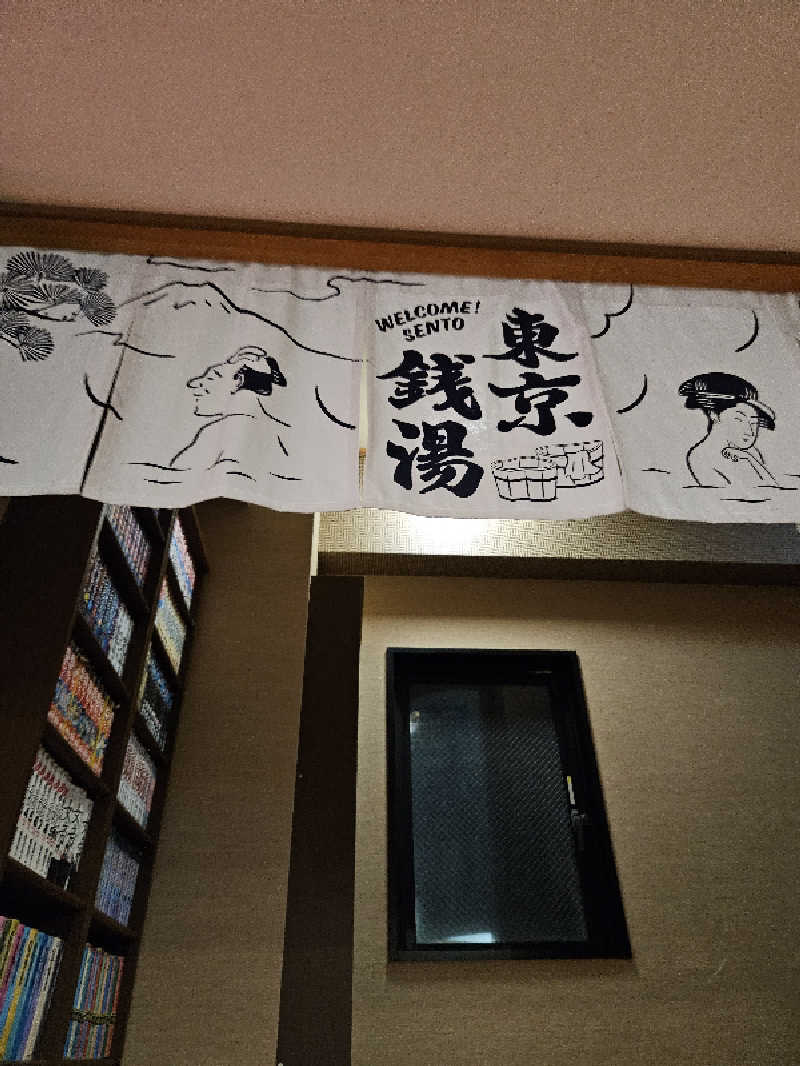 WELCOME!
SENTO
東京
銭湯